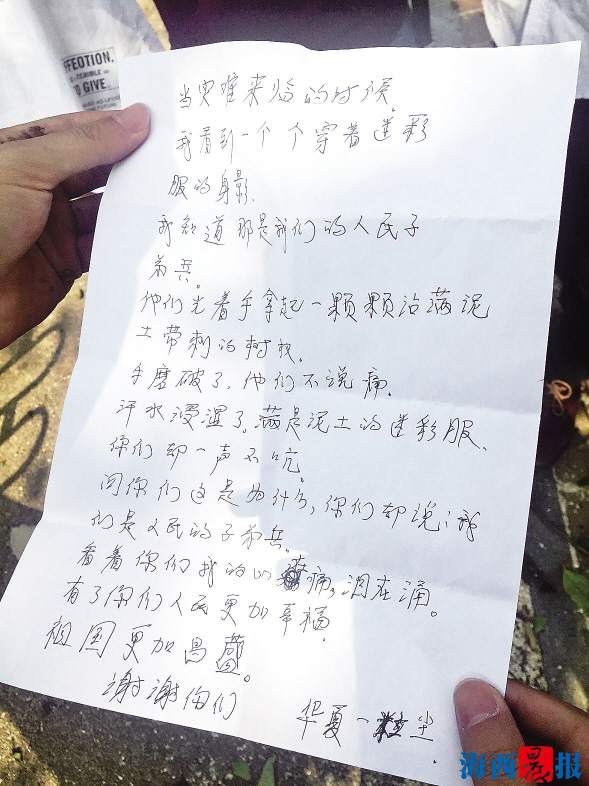 FEOTION.
TERRIBLE
TO GIVE
当灾难来临的时候.
我看到一个个穿着迷彩
服的身影.
我知道那是我们的人民子
弟兵。
他们光着手拿起一颗颗沾满泥
土带刺的树杈.
手磨破了,他们不说痛.
汗水浸湿了,满是泥土的迷彩服.
你们却一声不吭.
问你们这是为什么,你们却说:我
们是人民的子弟兵.
看着你们我的心疼痛,泪在涌。
有了你们人民更加幸福.
祖国更加昌盛。
谢谢你们
华夏一粒尘.
海西晨报